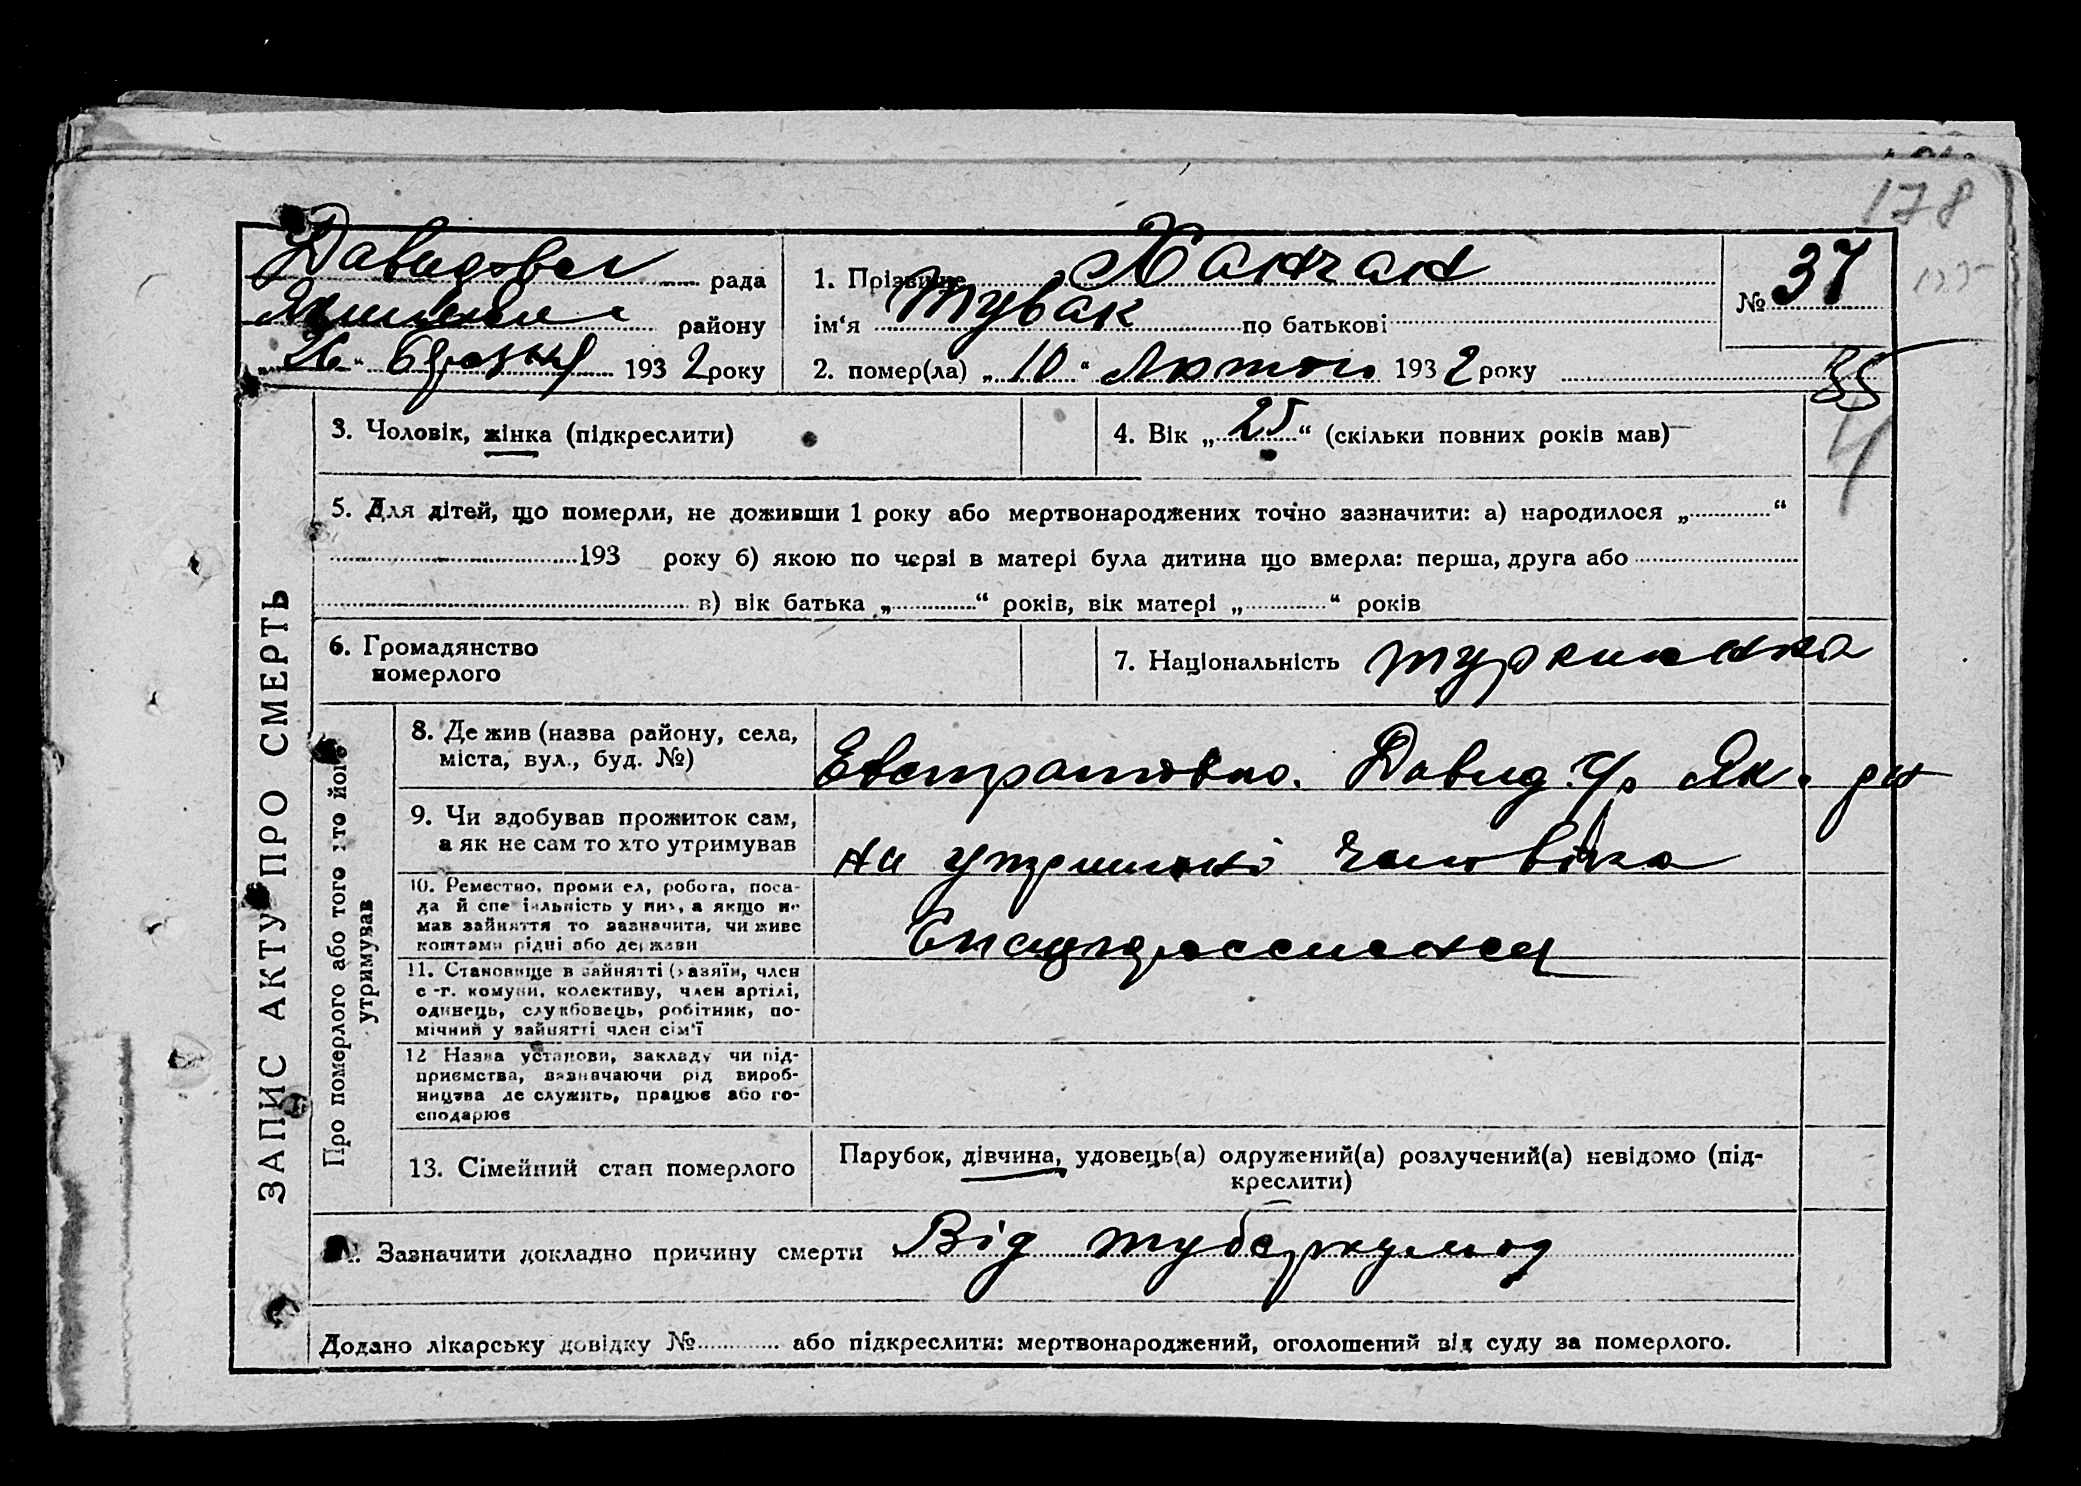 178
Давидовсг рада
району
„26“ березня 1932 року
1. Прізвище Ханчан
ім‘я Тувак по батькові
2. помер(ла) „10“ Лютого 1932 року
№ 37
125
35
4
3. Чоловік, жінка (підкреслити)
4. Вік „25“ (скільки повних років мав)
5. Для дітей, що померли, не доживши 1 року або мертвонароджених точно зазначити: а) народилося „ “
193 року б) якою по черзі в матері була дитина що вмерла: перша, друга або
в) вік батька „ “ років, вік матері „ “ років
6. Громадянство
померлого
7. Національність туркменка
ЗАПИС АКТУ ПРО СМЕРТЬ
Про померлого або того хто його
утримував
8. Де жив (назва району, села,
міста, вул., буд. №)
Евстратовко. Давид. с/р Як. рн
9. Чи здобував прожиток сам,
а як не сам то хто утримував
на утриманні чоловіка
10. Ремество, промисел, робота, поса-
да й спеціяльність у них, а якщо не
мав зайняття то зазначити, чи живе
коштами рідні або держави
Спецпереселенец
11. Становище в зайнятті (хазяїн, член
с.-г. комуни, колективу, член артілі,
одинець, службовець, робітник, по-
мічний у зайнятті член сім‘ї
12 Назва установи, закладу чи під-
приємства, зазначаючи рід вироб-
ництва де служить, працює або го-
сподарює
13. Сімейний стан померлого
Парубок, дівчина, удовець(а) одружений(а) розлучений(а) невідомо (під-
креслити)
Зазначити докладно причину смерти Від туберкульоз
Додано лікарську довідку № або підкреслити: мертвонароджений, оголошений від суду за померлого.